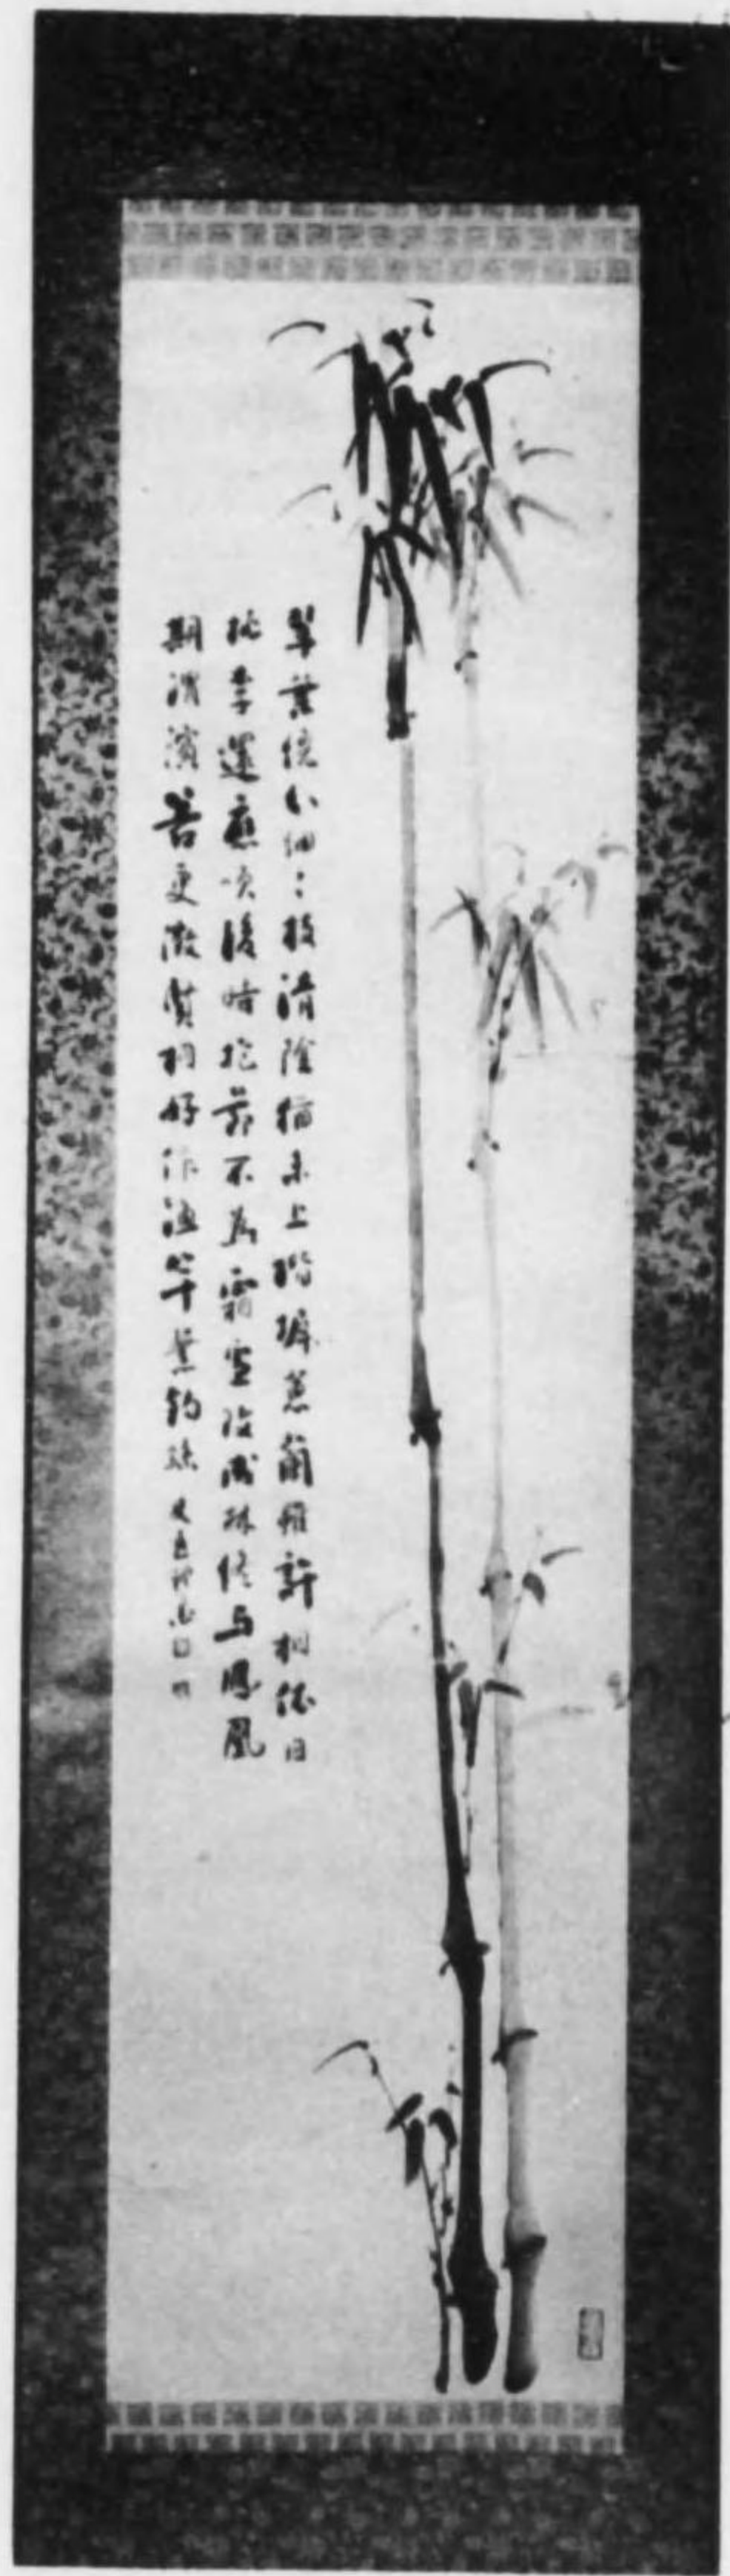 翠葉纔分細〻枝清陰猶未上階墀蕙蘭雖許相依日
桃李還應笑後時抱節不為霜改成林終與鳳凰
期渭濱若更徵賢相好作漁竿繫釣絲